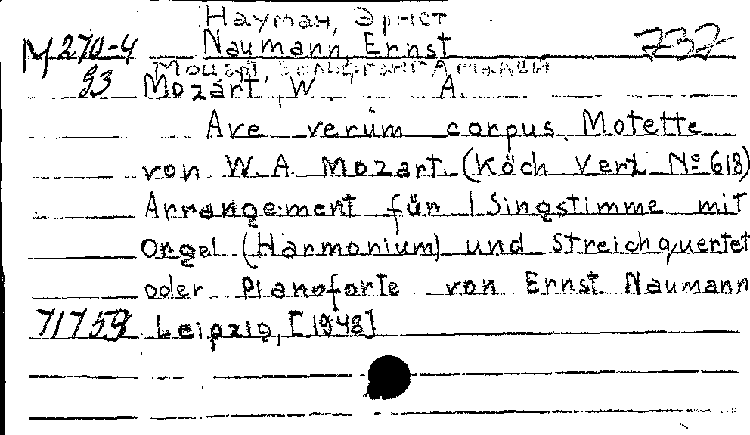 Науман, Эрнст
М 270-4 Naumann, Ernst 737
Моцарт, Вольфганг Амадей
93 Mozart, W. A.
Ave verum corpus. Motette
von W. A. Mozart. (Köch Verz. № 618)
Arrangement für 1 Singstimme mit
Orgel (Harmonium) und Streichquertet
oder Pianoforte von Ernst Naumann
71759 Leipzig, [1948]